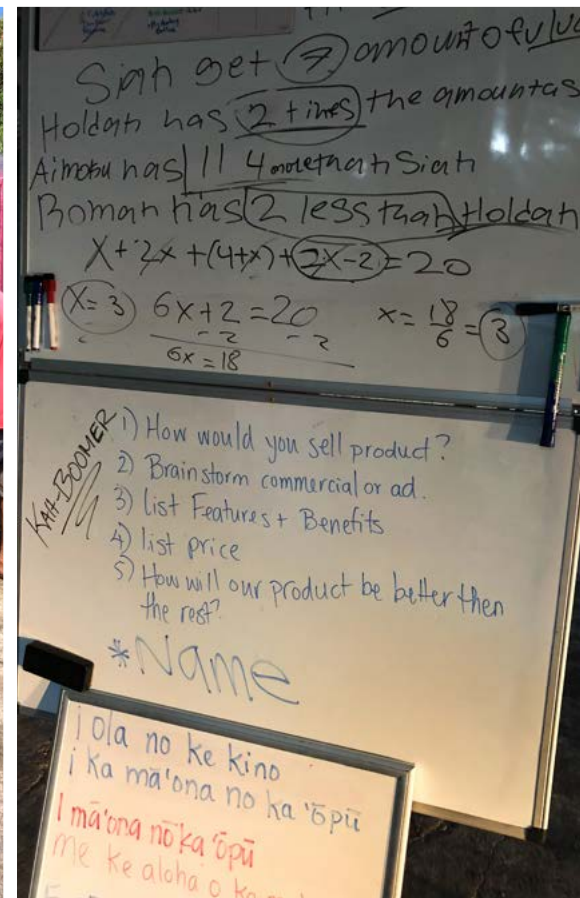 Siah get ? amount of
Holdah has 2 times the amount as
Aimoku has 4 more than Siah
Roman has 2 less than Holdah
x + 2x + (4+x) + 2x-2 = 20
x=3 6x+2=20 x= 18/6 = 3
-2 -2
6x=18
KAH-BOOMER
1) How would you sell product?
2) Brainstorm commercial or ad.
3) list Features + Benefits
4) list price
5) How will our product be better then
the rest?
*Name
i ola no ke kino
i ka mā'ona no ka 'ōpū
I mā'ona nō ka 'ōpū
me ke aloha o ka